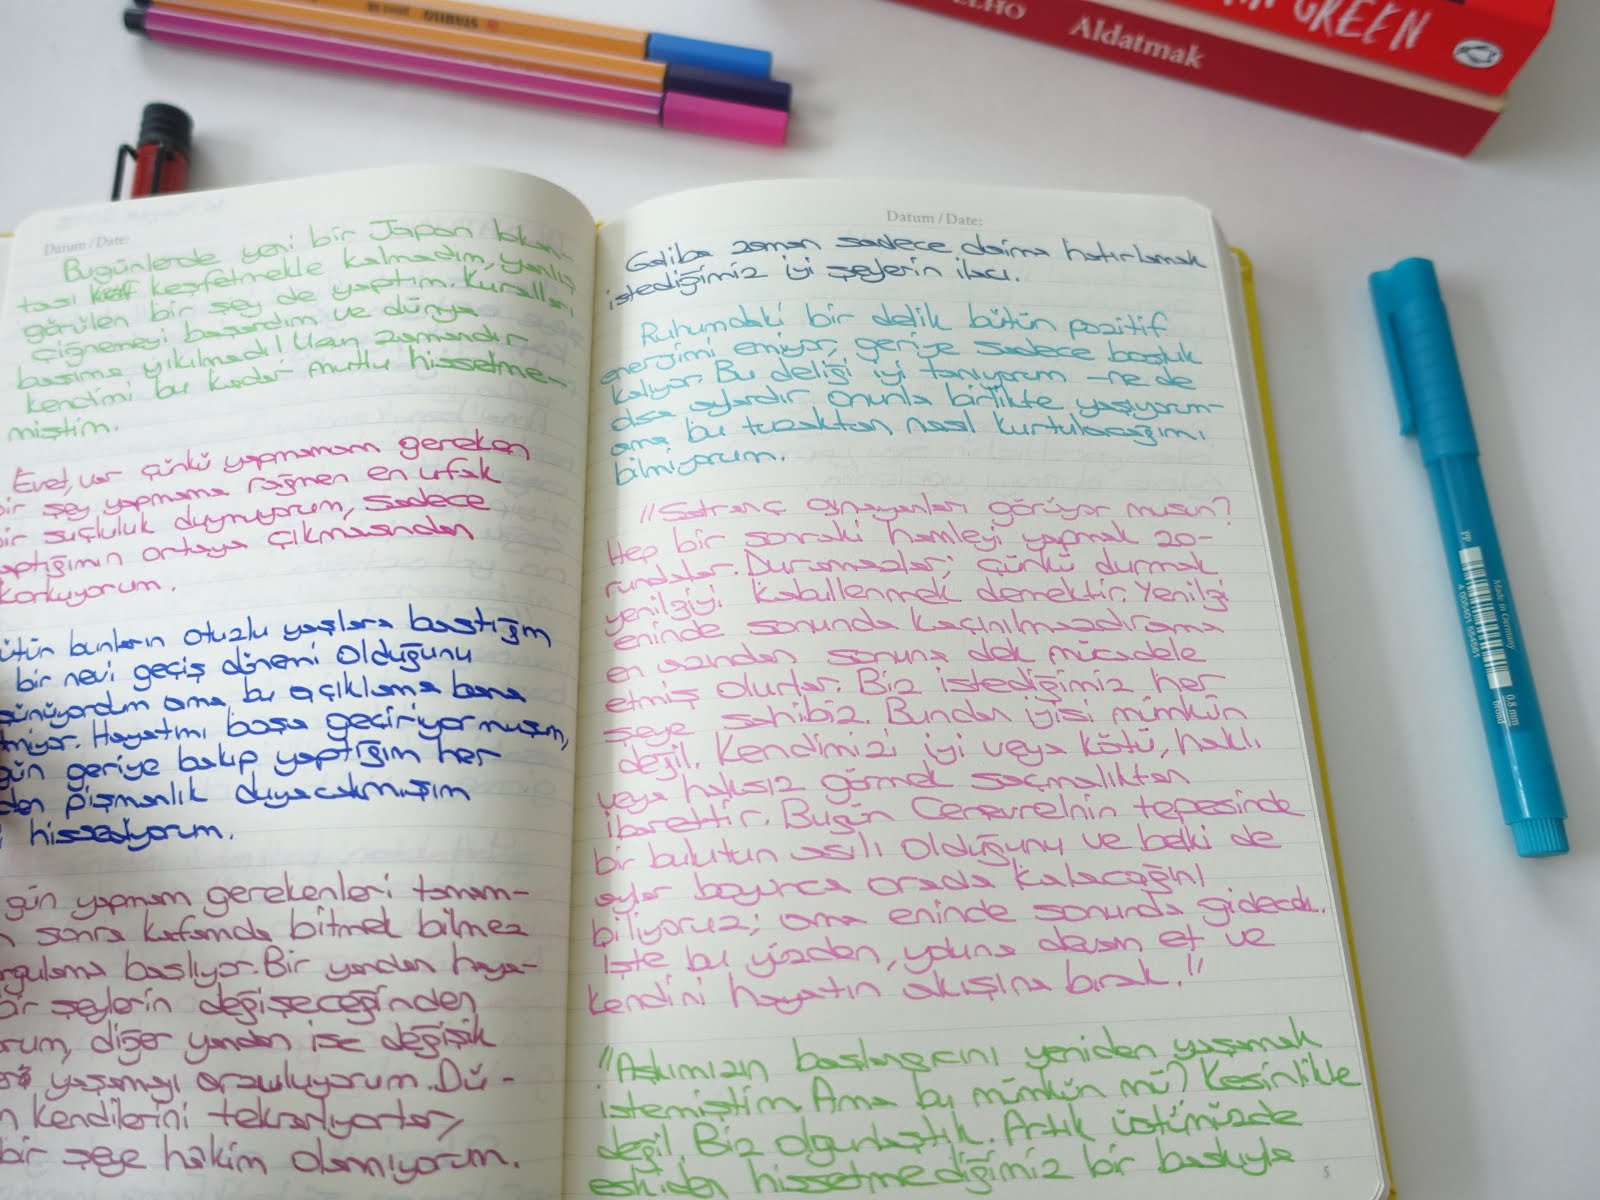 STABILO
ELHO
Aldatmak
GREEN
Datum / Date:
Bugünlerde yeni bir Japon lokan-
tası keşfetmekle kalmadım, yanlış
görülen bir şey de yaptım. Kuralları
çiğnemeyi başardım ve dünya
başıma yıkılmadı! Uzun zamandır
kendimi bu kadar mutlu hissetme-
miştim.
Evet, var çünkü yapmamam gereken
bir şey yapmama rağmen en ufak
bir suçluluk duymuyorum, sadece
yaptığımın ortaya çıkmasından
korkuyorum.
ütün bunların otuzlu yaşlara bastığım
bir nevi geçiş dönemi olduğunu
şünüyordum ama, bu açıklama bana
tmiyor. Hayatımı boşa geçiriyormuşum,
gün geriye bakıp yaptığım her
den pişmanlık duyacakmışım
i hissediyorum.
gün yapmam gerekenleri tamam-
n sonra kafamda bitmek bilmez
rgulama başlıyor. Bir yandan haya-
bir şeylerin değişeceğinden
orum, diğer yandan ise değişik
yaşamayı arzuluyorum. Dü-
n kendilerini tekrarlıyorlar,
bir şeye hakim olamıyorum.
Datum / Date:
Galiba zaman sadece daima hatırlamak
istediğimiz iyi şeylerin ilacı.
Ruhumdaki bir delik bütün pozitif
enerjimi emiyor, geriye sadece boşluk
kalıyor. Bu deliği iyi tanıyorum -ne de
olsa aylardır onunla birlikte yaşıyorum-
ama bu tuzaktan nasıl kurtulacağımı
bilmiyorum.
"Satranç oynayanları görüyor musun?
Hep bir sonraki hamleyi yapmak zo-
rundalar. Duramazlar; çünkü durmak
yenilgiyi kabullenmek demektir. Yenilgi
eninde sonunda kaçınılmazdır ama
en azından sonuna dek mücadele
etmiş olurlar. Biz istediğimiz her
şeye sahibiz. Bundan iyisi mümkün
değil. Kendimizi iyi veya kötü, haklı
veya haksız görmek saçmalıktan
ibarettir. Bugün Cenevre'nin tepesinde
bir bulutun asılı olduğunu ve belki de
aylar boyunca orada kalacağını
biliyoruz; ama eninde sonunda gidecek.
İşte bu yüzden, yoluna devam et ve
kendini hayatın akışına bırak."
"Aşkımızın başlangıcını yeniden yaşamak
istemiştim. Ama bu mümkün mü? Kesinlikle
değil. Biz olgunlaştık. Artık üstümüzde
eskiden hissetmediğimiz bir baskıyla
5
Made in Germany
4 006401 554561
0.8 mm